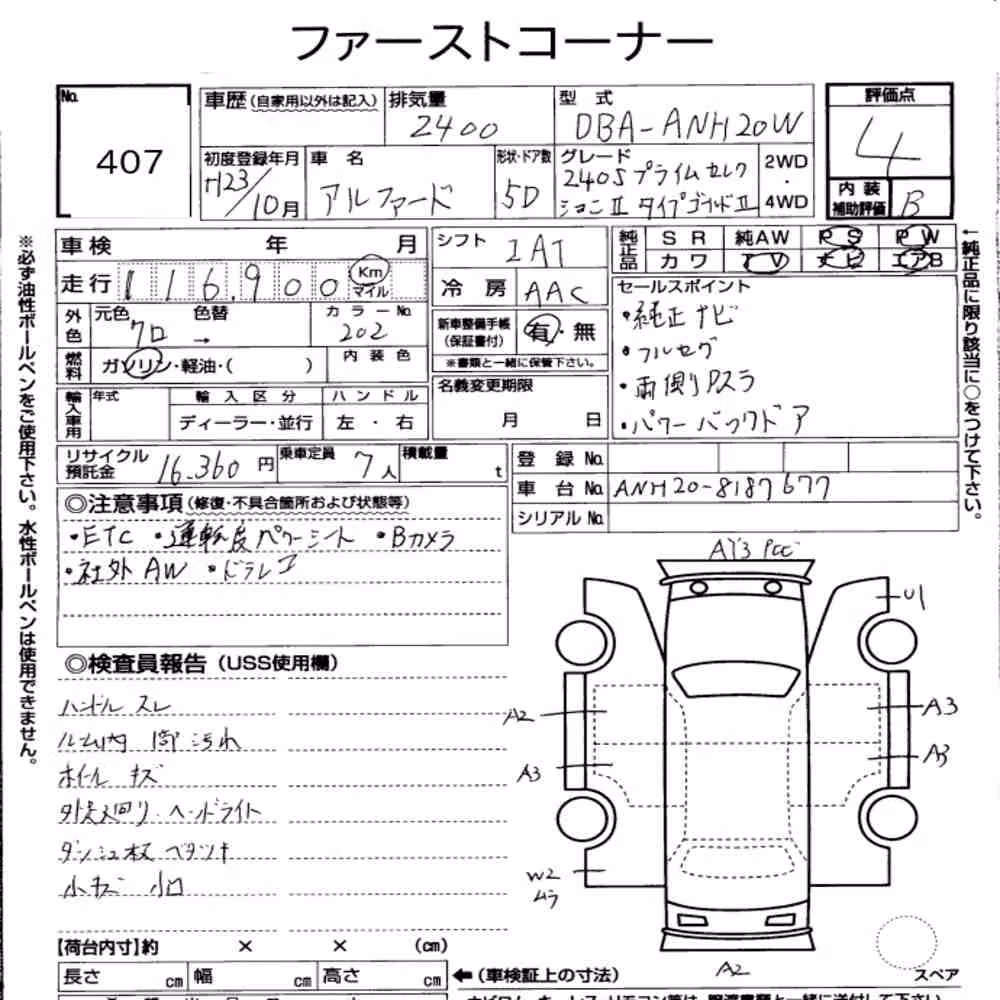 ファーストコーナー
No. 407
車歴(自家用以外は記入) 排気量 2400 型式 DBA-ANH20W
評価点 4
初度登録年月 H23/10月 車名 アルファード 形状・ドア数 5D グレード 240S プライムセレクションⅡ タイプゴールドⅡ 2WD・4WD
内装補助評価 B
車検 年 月
シフト IAT
純正品 SR 純AW PS PW
カワ TV ナビ エアB
走行 116,900 Km マイル
冷房 AAC
セールスポイント
・純正ナビ
・フルセグ
・両側Pスラ
・パワーバックドア
外色 元色 クロ 色替 → カラーNo. 202
新車整備手帳(保証書付) 有・無
※書類と一緒に保管下さい。
燃料 ガソリン・軽油・( ) 内装色
名義変更期限 月 日
輸入車用 年式 輸入区分 ハンドル
ディーラー・並行 左・右
リサイクル預託金 16,360円 乗車定員 7人 積載量 t
登録No.
車台No. ANH20-8187677
シリアルNo.
◎注意事項(修復・不具合箇所および状態等)
・ETC ・運転席パワーシート ・Bカメラ
・社外AW ・ドラレコ
◎検査員報告(USS使用欄)
ハンドルスレ
ルーム内 汚れ
ホイール キズ
ヘッドライト
ダッシュ板 ベタツキ
小キズ 小凹
【荷台内寸】約 × × (cm)
長さ cm 幅 cm 高さ cm
←(車検証上の寸法)
AY3
U1
A2
A3
A3
A3
W2
ムラ
A2
スペア
※必ず油性ボールペンをご使用下さい。水性ボールペンは使用できません。
←純正品に限り該当に○をつけて下さい。